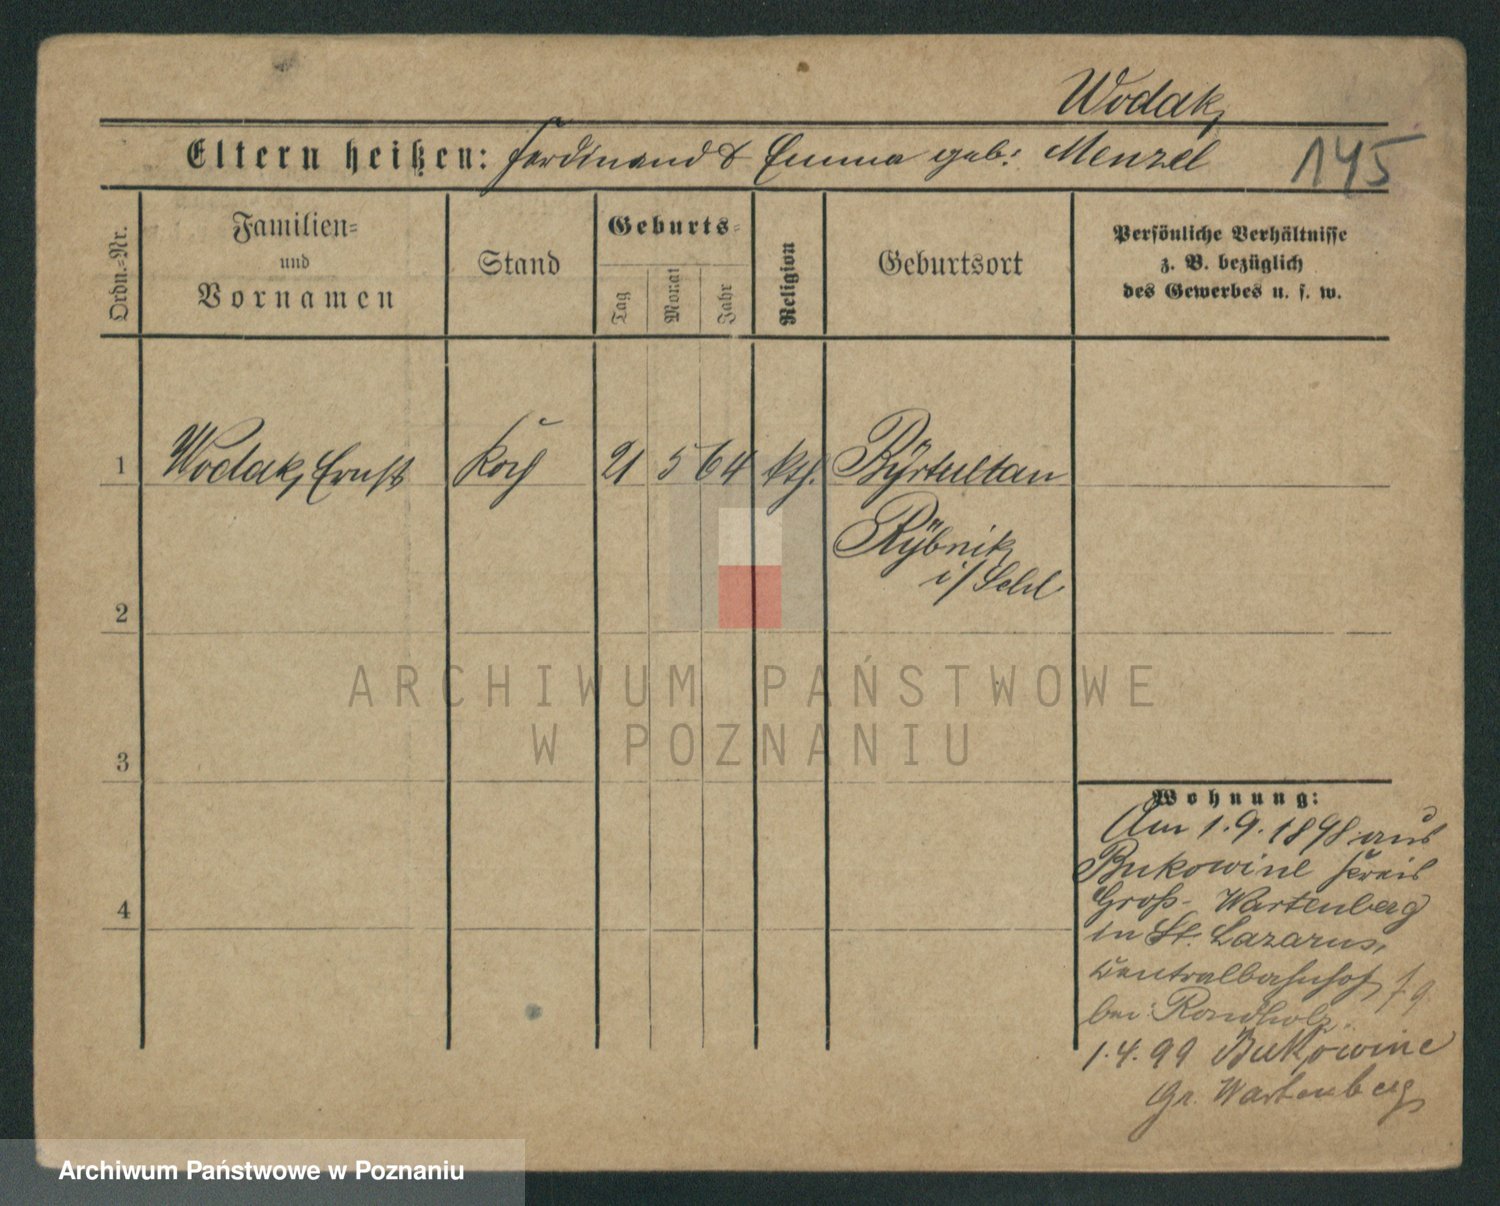 Wodak,
Eltern heißen: Ferdinand & Emma geb: Menzel 145
Ordn.-Nr.
Familien-
und
Vornamen
Stand
Geburts-
Tag
Monat
Jahr
Religion
Geburtsort
Persönliche Verhältnisse
z. B. bezüglich
des Gewerbes u. s. w.
1 Wodak, Ernst Koch 21 5 64 kth. Byrtultau
Rybnik
i/Schl
2
3
4
Wohnung:
Am 1.9.1898 aus
Bukowine Kreis
Groß-Wartenberg
in St. Lazarus,
Centralbahnhof
bei
1.4.99 Bukowine
Gr. Wartenberg
ARCHIWUM PAŃSTWOWE
W POZNANIU
Archiwum Państwowe w Poznaniu